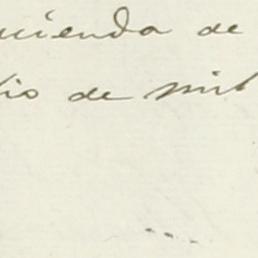 cienda de
lio de mil